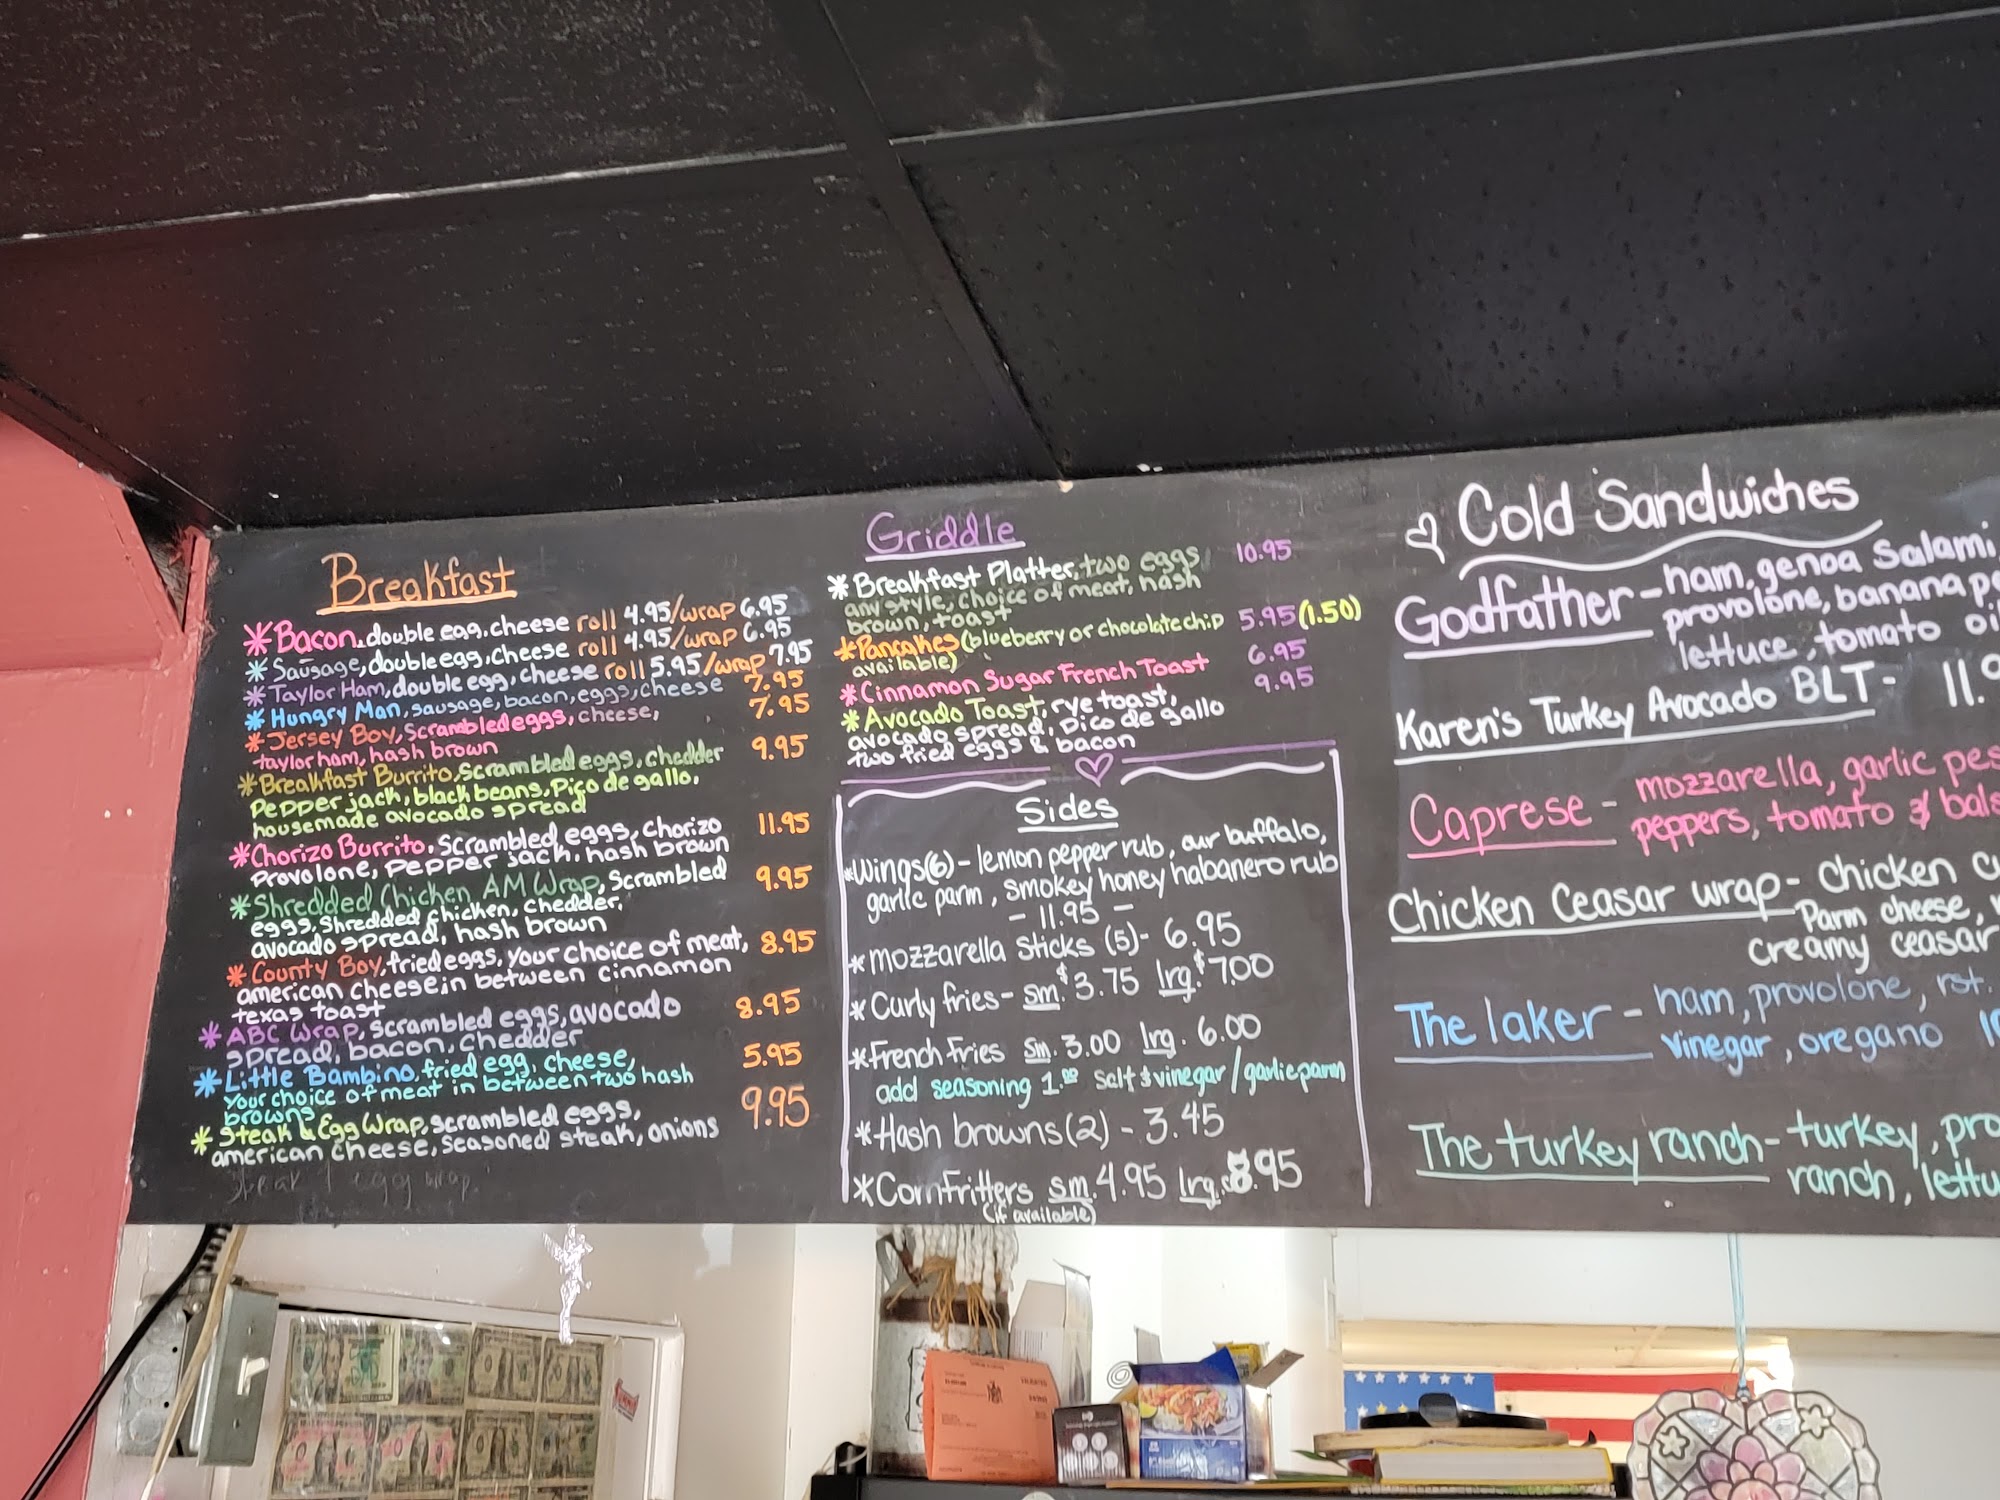 Breakfast
*Bacon, double egg, cheese roll 4.95/wrap 6.95
*Sausage, double egg, cheese roll 4.95/wrap 6.95
*Taylor Ham, double egg, cheese roll 5.95/wrap 7.95
*Hungry Man, sausage, bacon, eggs, cheese 7.95
*Jersey Boy, Scrambled eggs, cheese, 7.95
taylor ham, hash brown
*Breakfast Burrito, Scrambled eggs, chedder 9.95
Pepper jack, black beans, Pico de gallo,
housemade avocado spread
*Chorizo Burrito, Scrambled eggs, Chorizo 11.95
Provolone, Pepper jack, hash brown
*Shredded Chicken AM Wrap, Scrambled 9.95
eggs, Shredded chicken, Chedder,
avocado spread, hash brown
*County Boy, fried eggs, your choice of meat, 8.95
american cheese in between cinnamon
texas toast
*ABC Wrap, scrambled eggs, avocado 8.95
spread, bacon, chedder
*Little Bambino, fried egg, cheese, 5.95
your choice of meat in between two hash
browns
*Steak & Egg Wrap, scrambled eggs, 9.95
american cheese, seasoned steak, onions
Griddle
*Breakfast Platter, two eggs 10.95
any style, choice of meat, hash
brown, toast
*Pancakes (blueberry or chocolate chip 5.95 (1.50)
available)
*Cinnamon Sugar French Toast 6.95
*Avocado Toast, rye toast, 9.95
avocado spread, Pico de gallo
two fried eggs & bacon
Sides
*Wings(6) - lemon pepper rub, our buffalo,
garlic parm, smokey honey habanero rub
- 11.95 -
*mozzarella Sticks (5) - 6.95
*Curly fries - sm. $3.75 lrg. $7.00
*French Fries sm. 3.00 lrg. 6.00
add seasoning 1.00 salt & vinegar / garlic parm
*Hash browns (2) - 3.45
*Corn Fritters sm. 4.95 lrg. 8.95
(if available)
Cold Sandwiches
Godfather - ham, genoa Salami,
provolone, banana
lettuce, tomato
Karen's Turkey Avocado BLT -
Caprese - mozzarella, garlic
peppers, tomato &
Chicken Ceasar wrap - chicken
Parm cheese,
creamy ceasar
The laker - ham, provolone, rst.
vinegar, oregano
The turkey ranch - turkey,
ranch,